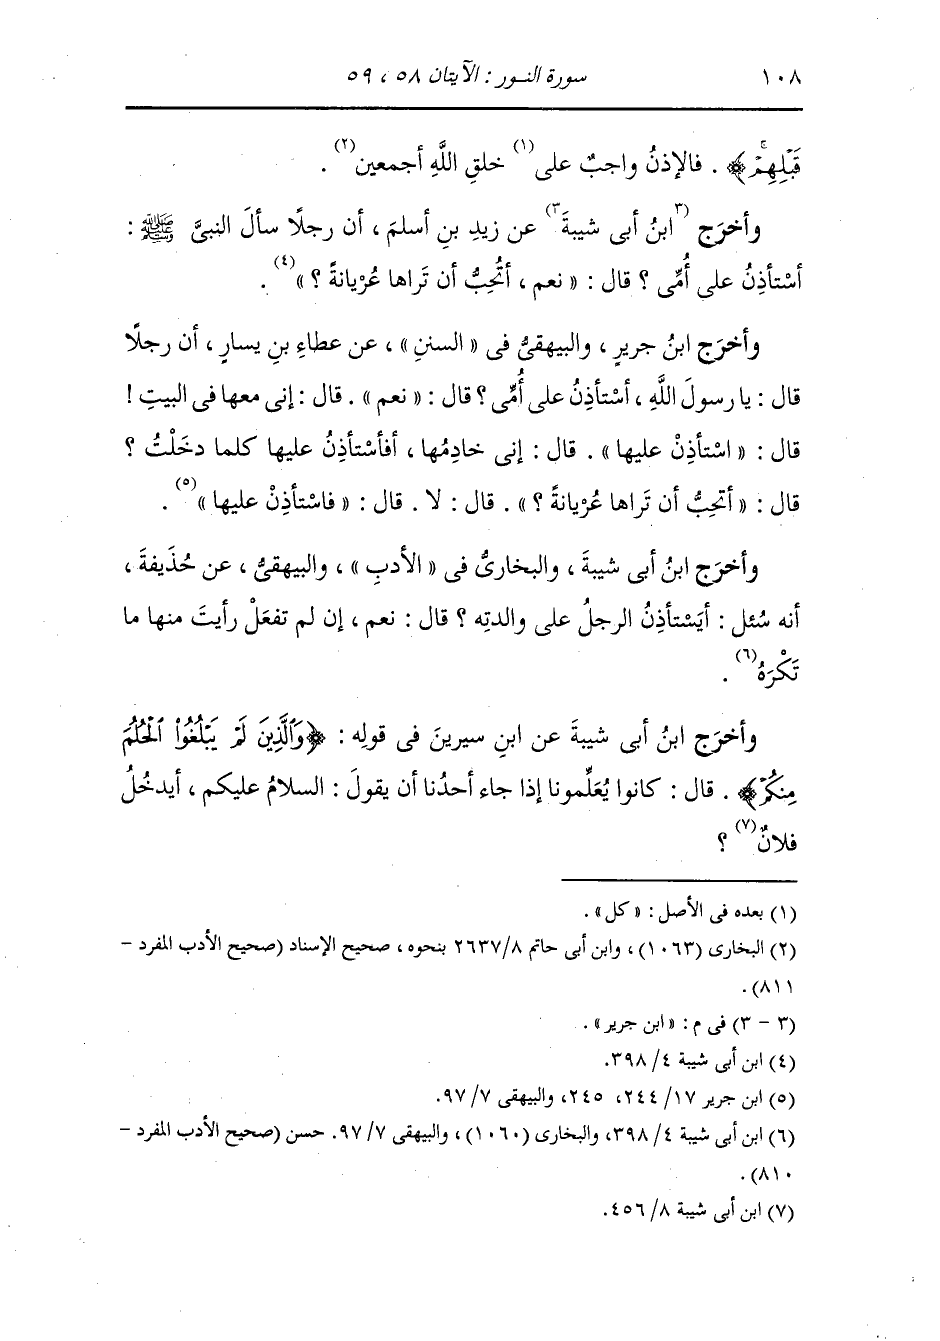 ١٠٨ سورة النـور : الآيتان ٥٨ ، ٥٩
قَبْلِهِمْۚ﴾ . فالإذنُ واجبٌ على(١) خلقِ اللَّهِ أجمعين(٢) .
وأخرَج (٣ابنُ أبى شيبةَ٣) عن زيدِ بنِ أسلمَ ، أن رجلًا سألَ النبىَّ ﷺ :
أسْتأذِنُ على أُمِّى ؟ قال : « نعم ، أتُحِبُّ أن تَراها عُرْيانةً ؟ »(٤) .
وأخرَج ابنُ جريرٍ ، والبيهقىُّ فى « السننِ » ، عن عطاءِ بنِ يسارٍ ، أن رجلًا
قال : يا رسولَ اللَّهِ ، أسْتأذِنُ على أُمِّى ؟ قال : « نعم » . قال : إنى معها فى البيتِ !
قال : « اسْتأذِنْ عليها » . قال : إنى خادِمُها ، أفأسْتأذِنُ عليها كلما دخَلْتُ ؟
قال : « أتحِبُّ أن تَراها عُرْيانةً ؟ » . قال : لا . قال : « فاسْتأذِنْ عليها »(٥) .
وأخرَج ابنُ أبى شيبةَ ، والبخارىُّ فى « الأدبِ » ، والبيهقىُّ ، عن حُذَيفةَ ،
أنه سُئل : أيَسْتأذِنُ الرجلُ على والدتِه ؟ قال : نعم ، إن لم تفعَلْ رأيتَ منها ما
تَكْرَهُ(٦) .
وأخرَج ابنُ أبى شيبةَ عن ابنِ سيرينَ فى قولِه : ﴿وَٱلَّذِينَ لَمْ يَبْلُغُوا۟ ٱلْحُلُمَ
مِنكُمْ﴾ . قال : كانوا يُعَلِّمونا إذا جاء أحدُنا أن يقولَ : السلامُ عليكم ، أيدخُلُ
فلانٌ(٧) ؟
(١) بعده فى الأصل : « كل » .
(٢) البخارى (١٠٦٣) ، وابن أبى حاتم ٢٦٣٧/٨ بنحوه ، صحيح الإسناد (صحيح الأدب المفرد -
٨١١) .
(٣ - ٣) فى م : « ابن جرير » .
(٤) ابن أبى شيبة ٤/ ٣٩٨.
(٥) ابن جرير ١٧/ ٢٤٤، ٢٤٥، والبيهقى ٧/ ٩٧.
(٦) ابن أبى شيبة ٤/ ٣٩٨، والبخارى (١٠٦٠) ، والبيهقى ٧/ ٩٧. حسن (صحيح الأدب المفرد -
٨١٠) .
(٧) ابن أبى شيبة ٨/ ٤٥٦.